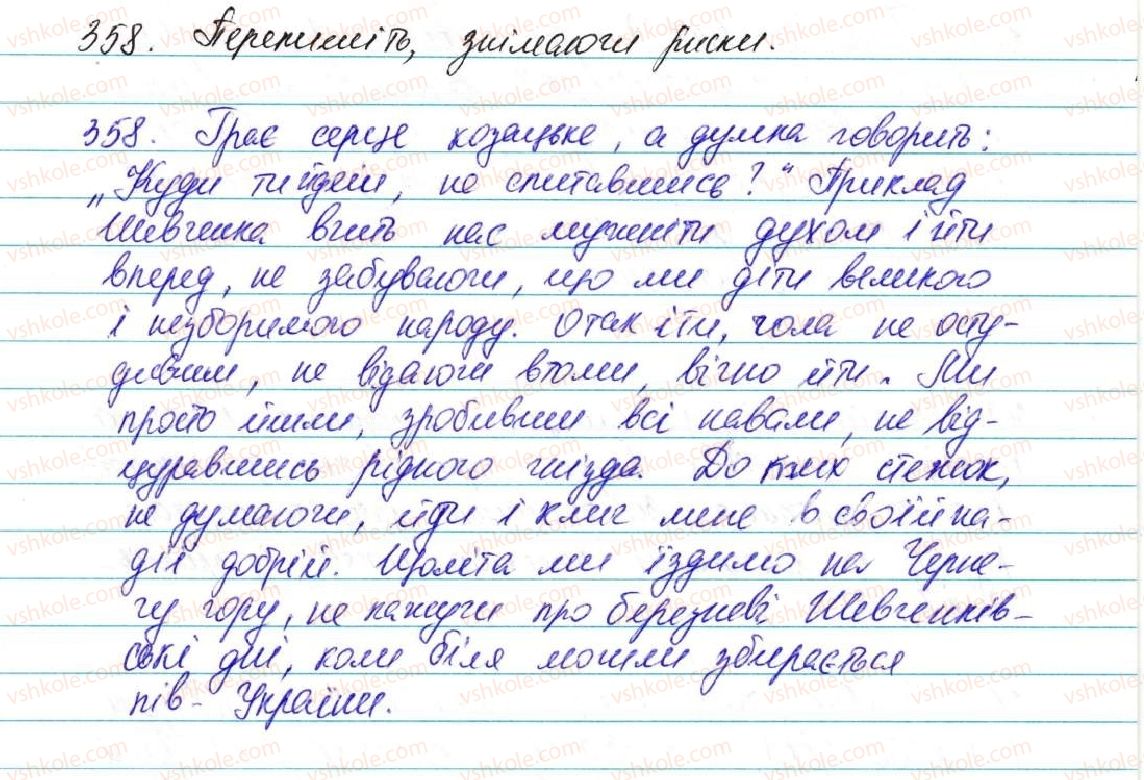 358. Перепишіть, знімаючи риски.
358. Грає серце козацьке, а думка говорить:
„Куди ти йдеш, не спитавшись?“ Приклад
Шевченка вчить нас мужніти духом і йти
вперед, не забуваючи, що ми діти великого
і незборимого народу. Отак іти, чола не осту-
дивши, не відаючи втоми, вічно йти. Ми
просто йшли, зробивши всі навали, не від-
цуравшись рідного гнізда. До тих стежок,
не думаючи, йди і клич мене в своїй на-
дії добрій. Щоліта ми їздимо на Черне-
чу гору, не кажучи про березневі Шевченків-
ські дні, коли біля могили збирається
пів-України.